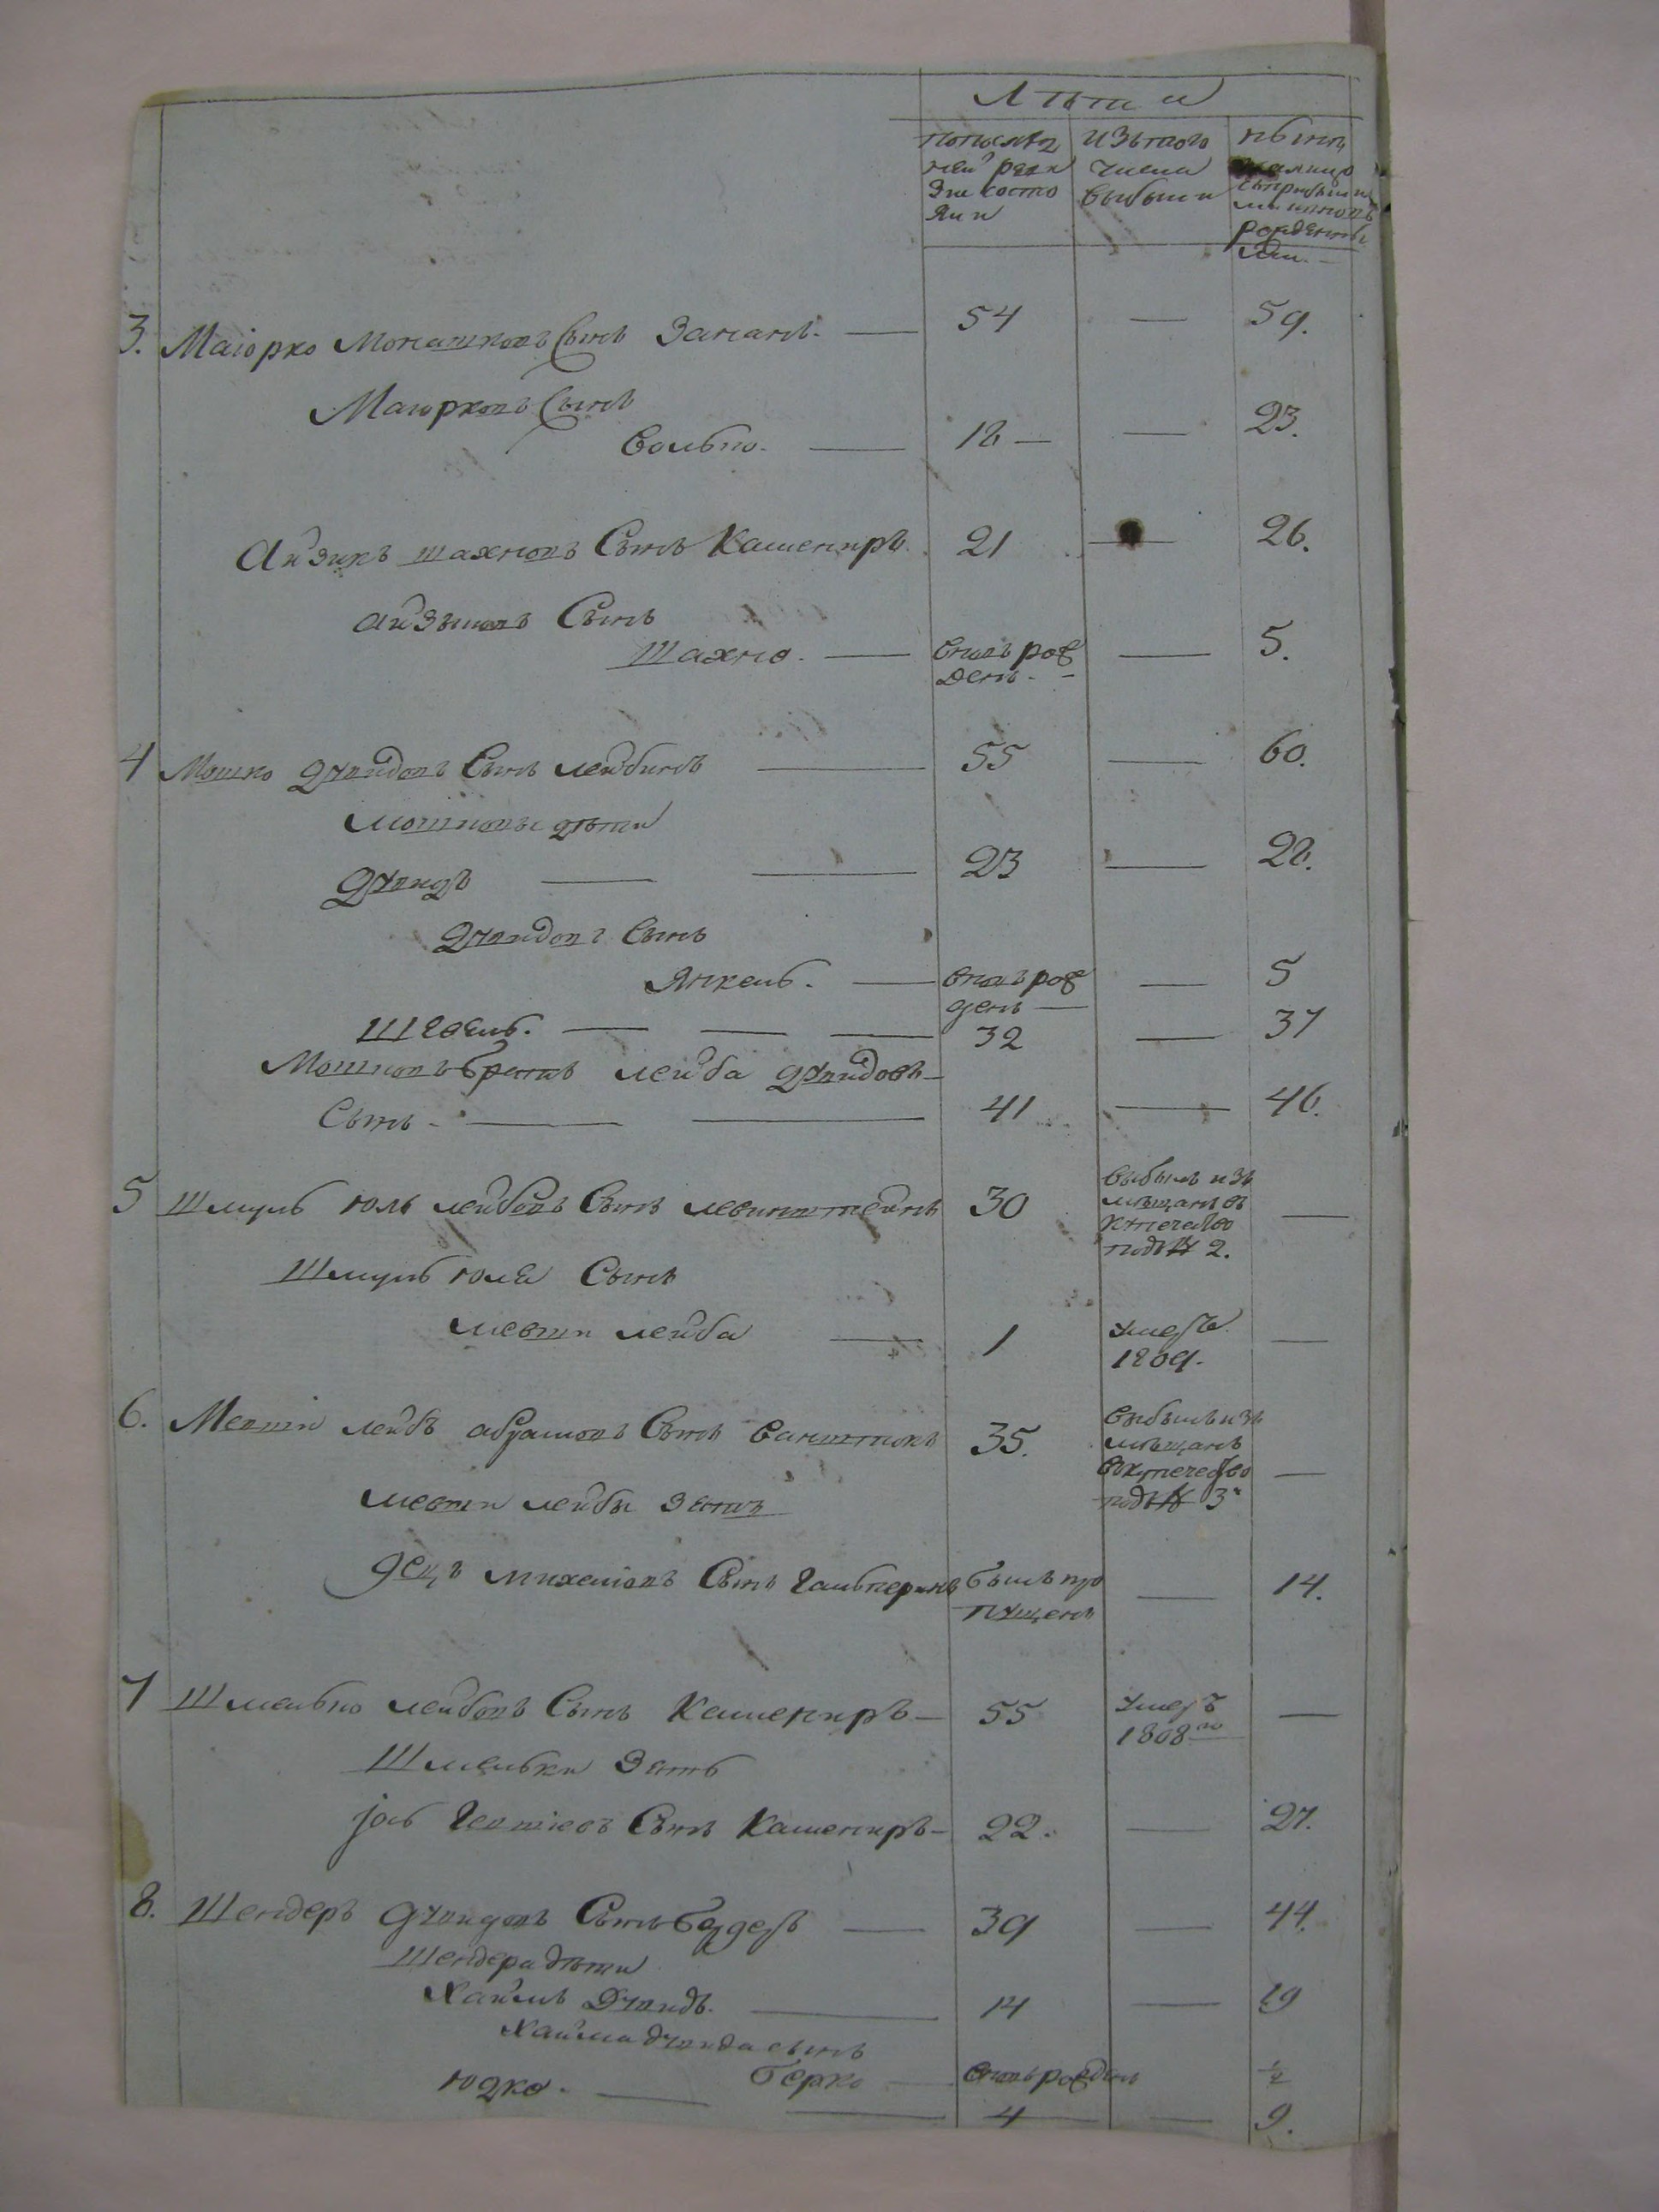 Лѣта
по последней ревизіи состояли
изъ того числа выбыли
нынѣ на лицо съ прибылыми и новорожденными
3. Маіорко Монашковъ Сынъ Заманъ. — 54 — 59.
Маіорковъ Сынъ
Волько. — 18 — — 23.
Айзикъ шахновъ Сынъ Кашениръ. 21 — 26.
айзиковъ Сынъ
Шахно. — вновь рожденъ. — — 5.
4 Мошко Давидовъ Сынъ лейбинъ — 55 — 60.
мошковы дѣти
Давидъ — — 23 — 28.
Давидовъ Сынъ
Янкель. — вновь рожденъ — — 5
— — — 32 — 37
Мошковъ братъ лейба давидовъ
Сынъ. — — 41 — 46.
5 Шмуль юль лейбовъ Сынъ левинштейнъ 30 выбылъ изъ мѣщанъ въ купечество подъ № 2. —
Шмуль юля Сынъ
мевши лейба — 1 умеръ 1809. —
6. Мевши лейбъ абрамовъ Сынъ ванштокъ 35. выбылъ изъ мѣщанъ въ купечество подъ № 3 —
мевши лейбы зять
михелювъ Сынъ Гальперинъ былъ пропущенъ — 14.
7 Шмелько лейбовъ Сынъ Кашениръ — 55 умеръ 1808го —
Шмельки зять
Сынъ Кашениръ — 22. — 27.
8. Шендеръ давидовъ Сынъ — 39 — 44.
Шендера дѣти
Хаимъ Давидъ. — 14 — 19
Хаима давида сынъ
Берко — вновь рожденъ 1/2
юдко. — — 4 — — 9.